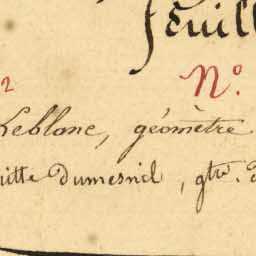 feuill
N°
2
Leblanc, géomètre
uitte Dumesnil, gtre.